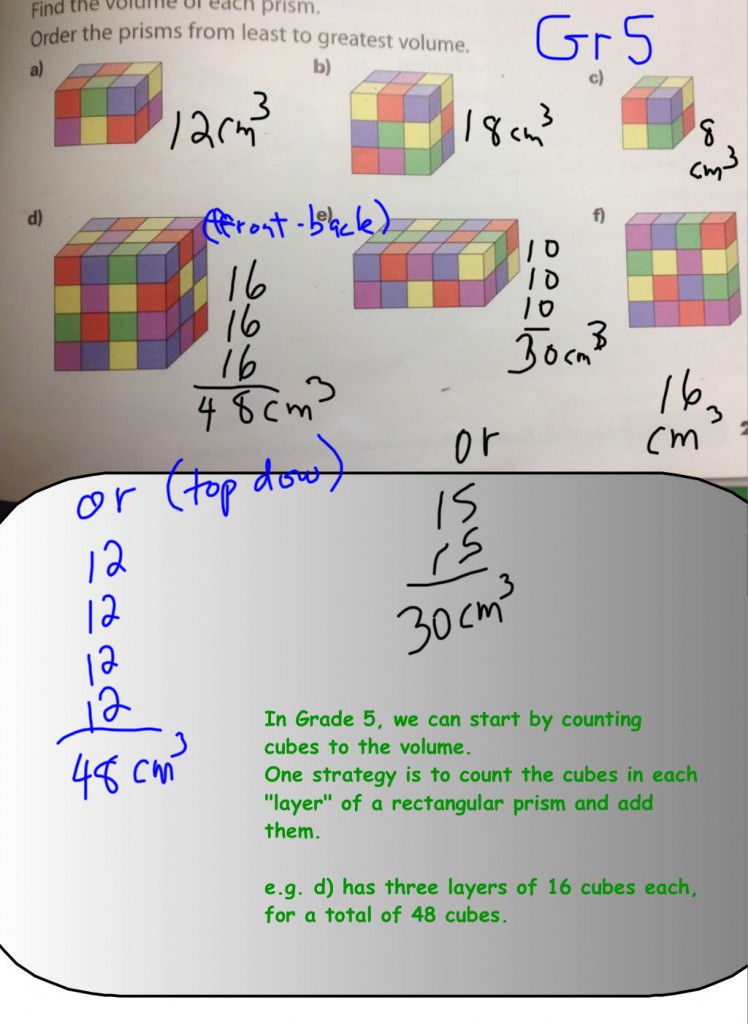 Find the volume of each prism.
Order the prisms from least to greatest volume.
Gr 5
a)
12cm³
b)
18cm³
c)
8
cm³
d)
(front-back)
16
16
16
48cm³
e)
10
10
10
30cm³
f)
16
cm³
or (top dow)
12
12
12
12
48 cm³
or
15
15
30cm³
In Grade 5, we can start by counting
cubes to the volume.
One strategy is to count the cubes in each
"layer" of a rectangular prism and add
them.
e.g. d) has three layers of 16 cubes each,
for a total of 48 cubes.